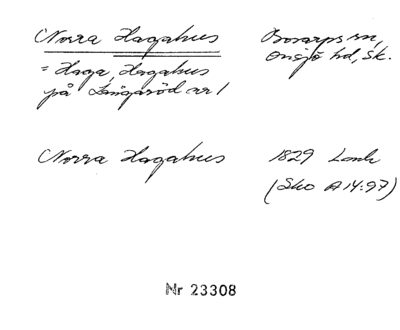 Norra Hagahus
Bosarps sn,
Onsjö hd, Sk.
= Haga, Hagahus
på Långaröd nr 1
Norra Hagahus
1829 Lantm
(Sko A 14:97)
Nr 23308